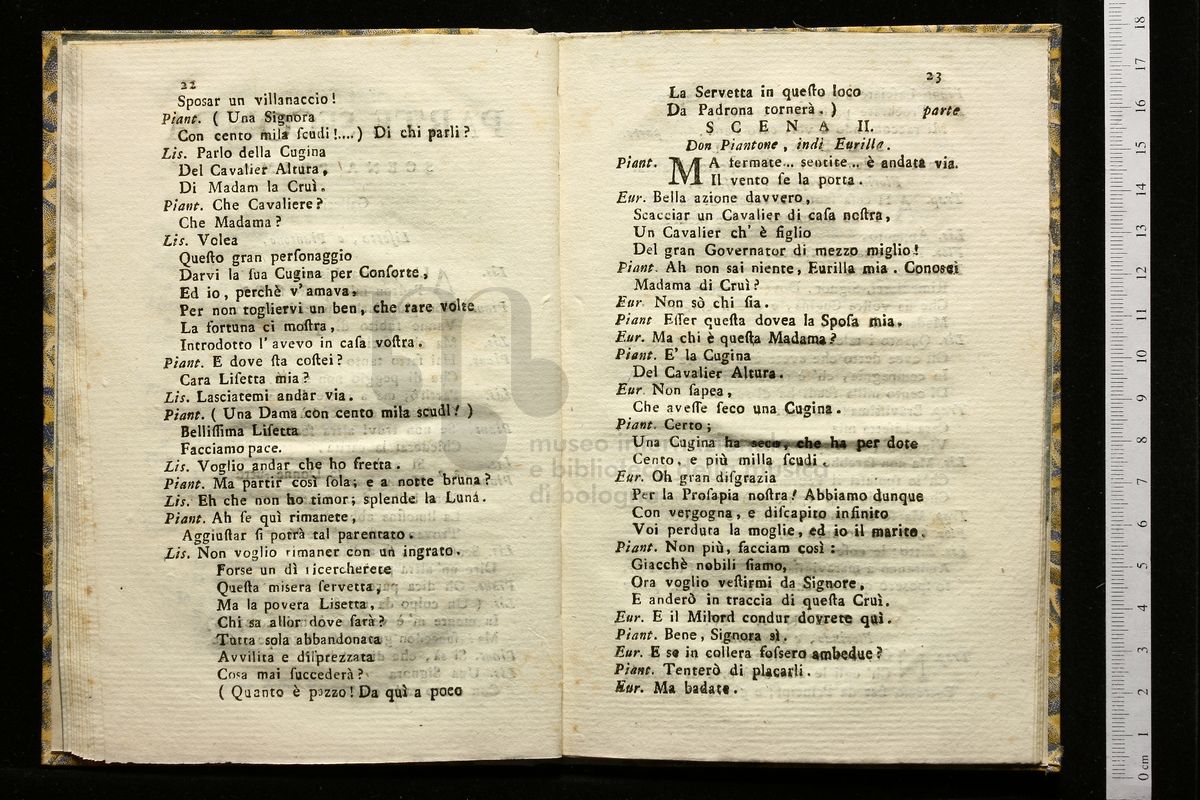 22
Sposar un villanaccio!
Piant. ( Una Signora
Con cento mila ſcudi!....) Di chi parli?
Lis. Parlo della Cugina
Del Cavalier Altura,
Di Madam la Cruì.
Piant. Che Cavaliere?
Che Madama?
Lis. Volea
Queſto gran perſonaggio
Darvi la ſua Cugina per Conſorte,
Ed io, perchè v'amava,
Per non togliervi un ben, che rare volte
La fortuna ci moſtra,
Introdotto l'avevo in caſa voſtra.
Piant. E dove ſta coſtei?
Cara Liſetta mia?
Lis. Lasciatemi andar via.
Piant. ( Una Dama con cento mila scudi! )
Belliſſima Liſetta
Facciamo pace.
Lis. Voglio andar che ho fretta.
Piant. Ma partir così ſola; e a notte bruna?
Lis. Eh che non ho timor; splende la Luna.
Piant. Ah ſe quì rimanete,
Aggiuſtar ſi potrà tal parentato.
Lis. Non voglio rimaner con un ingrato.
Forse un dì ricercherete
Queſta misera ſervetta,
Ma la povera Lisetta,
Chi sa allor dove ſarà?
Tutta sola abbandonata
Avvilita e diſprezzata
Cosa mai ſuccederà?
( Quanto è pazzo! Da quì a poco
23
La Servetta in queſto loco
Da Padrona tornerà. ) parte
SCENA II.
Don Piantone, indi Eurilla.
Piant. MA fermate... sentite... è andata via.
Il vento ſe la porta.
Eur. Bella azione davvero,
Scacciar un Cavalier di caſa noſtra,
Un Cavalier ch'è figlio
Del gran Governator di mezzo miglio!
Piant. Ah non sai niente, Eurilla mia. Conosci
Madama di Cruì?
Eur. Non sò chi ſia.
Piant Eſſer queſta dovea la Spoſa mia.
Eur. Ma chi è queſta Madama?
Piant. E' la Cugina
Del Cavalier Altura.
Eur. Non ſapea,
Che aveſſe ſeco una Cugina.
Piant. Certo;
Una Cugina ha seco, che ha per dote
Cento, e più milla ſcudi.
Eur. Oh gran diſgrazia
Per la Proſapia noſtra! Abbiamo dunque
Con vergogna, e diſcapito infinito
Voi perduta la moglie, ed io il marito.
Piant. Non più, facciam così:
Giacchè nobili ſiamo,
Ora voglio veſtirmi da Signore,
E anderò in traccia di queſta Cruì.
Eur. E il Milord condur dovrete quì.
Piant. Bene, Signora sì.
Eur. E se in collera foſsero ambedue?
Piant. Tenterò di placarli.
Eur. Ma badate.